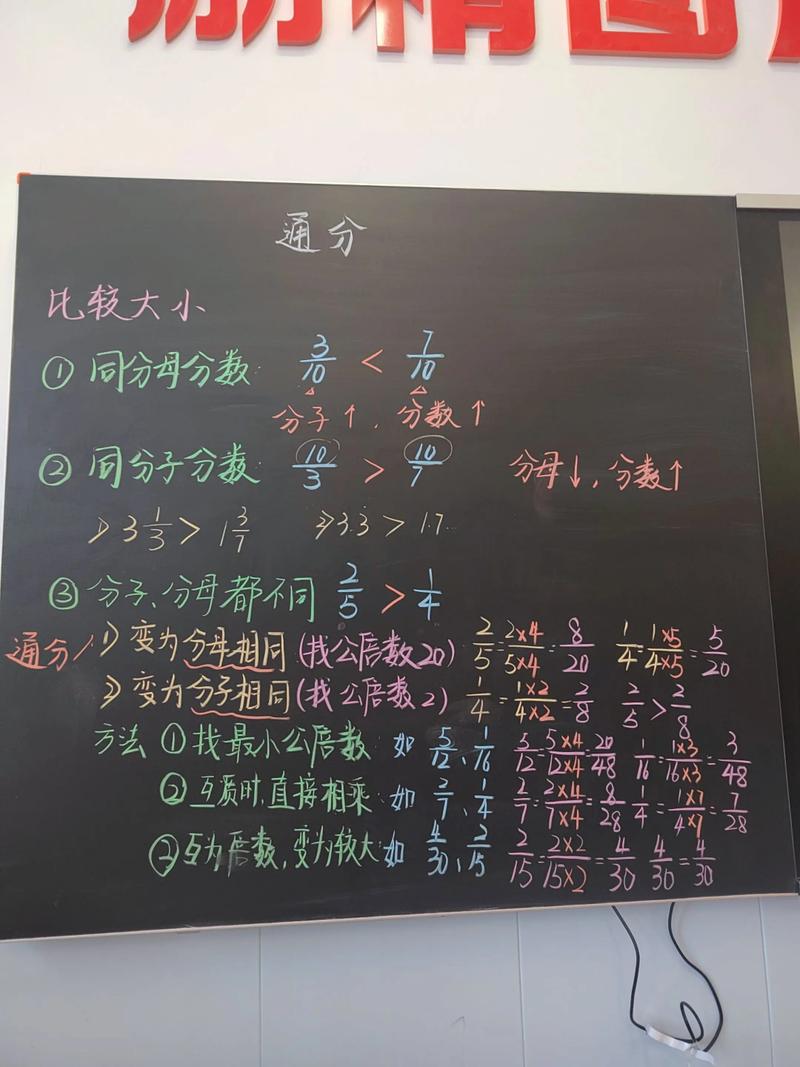 励精图
通分
比较大小
① 同分母分数: 3/10 < 7/10
分子↑, 分数↑
② 同分子分数: 10/3 > 10/7 分母↓, 分数↑
1) 3 1/3 > 1 3/7 2) 3.3 > 1.7
③ 分子、分母都不同 2/5 > 1/4
通分 1) 变为分母相同 (找公倍数20) 2/5 = 2×4/5×4 = 8/20 1/4 = 1×5/4×5 = 5/20
2) 变为分子相同 (找公倍数2) 1/4 = 1×2/4×2 = 2/8 2/5 > 2/8
方法 ① 找最小公倍数: 如 5/12、1/16 5/12 = 5×4/12×4 = 20/48 1/16 = 1×3/16×3 = 3/48
② 互质时,直接相乘: 如 2/7、1/4 2/7 = 2×4/7×4 = 8/28 1/4 = 1×7/4×7 = 7/28
③ 互为倍数,变为较大: 如 4/30、2/15 2/15 = 2×2/15×2 = 4/30 4/30 = 4/30